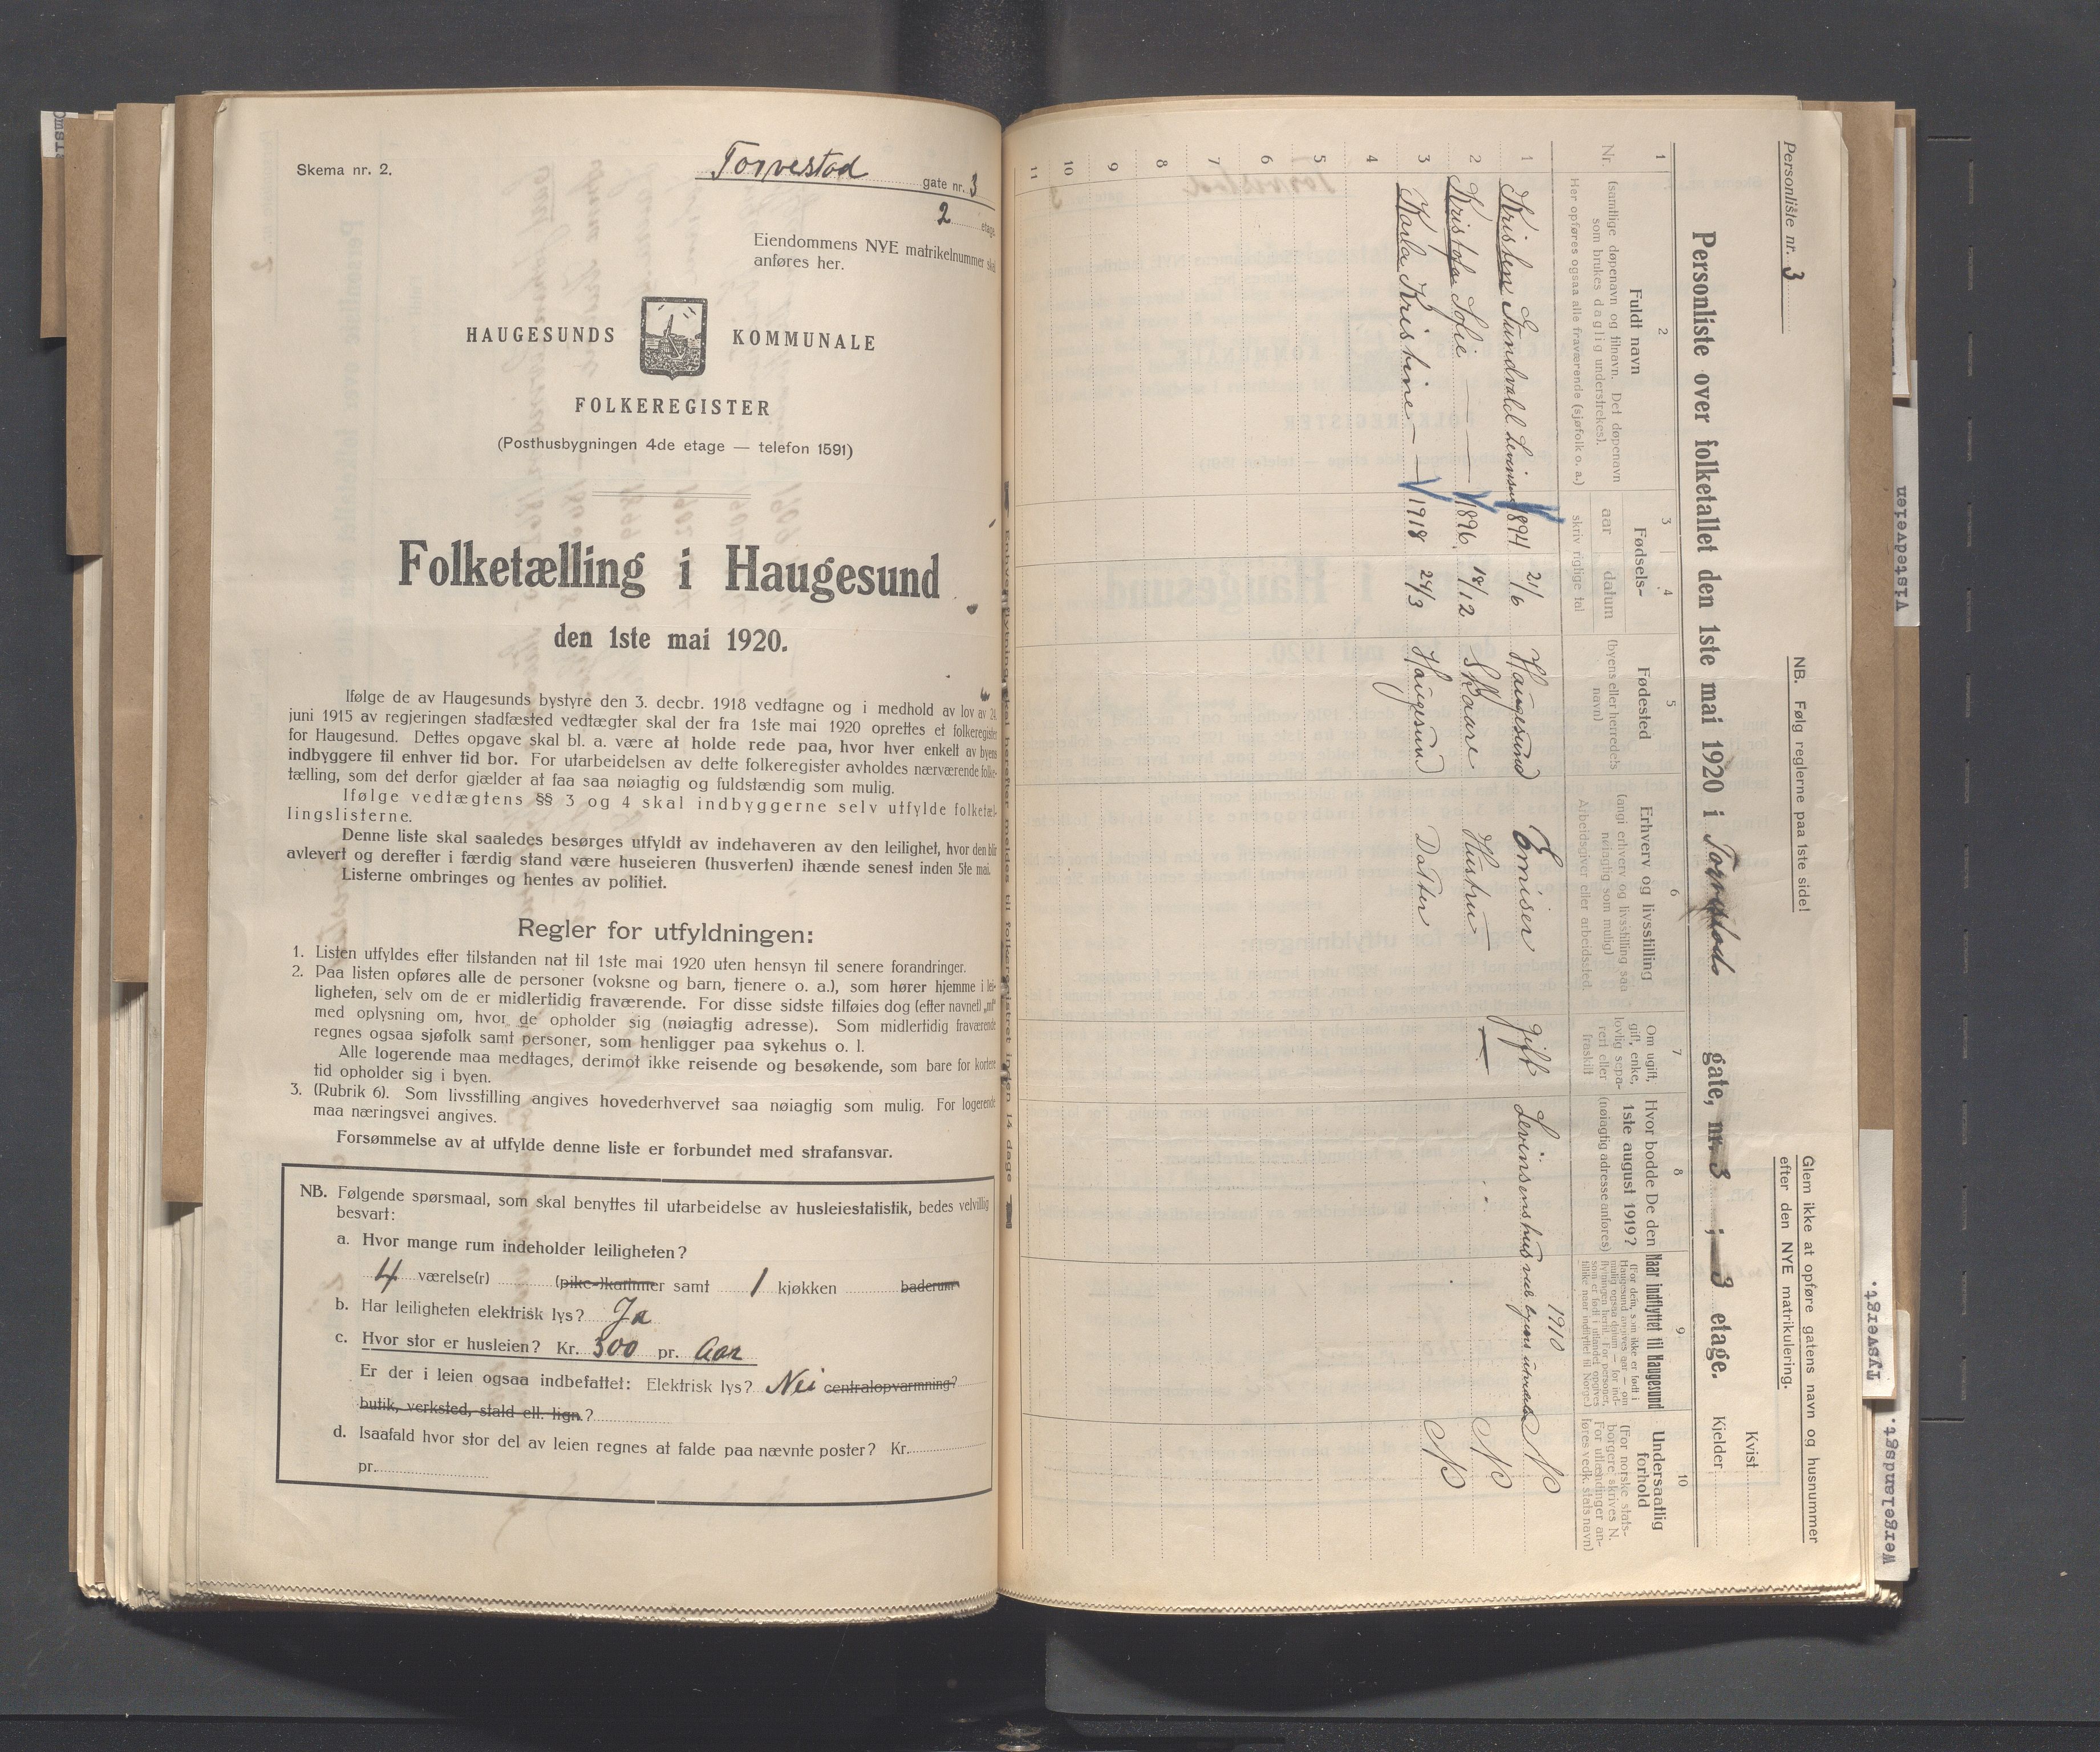 Skema nr. 2.
Torvestad gate nr. 3
2 etage
Eiendommens NYE matrikelnummer skal
anføres her.
HAUGESUNDS KOMMUNALE
FOLKEREGISTER
(Posthusbygningen 4de etage — telefon 1591)
Folketælling i Haugesund
den 1ste mai 1920.
Ifølge de av Haugesunds bystyre den 3. decbr. 1918 vedtagne og i medhold av lov av 24
juni 1915 av regjeringen stadfæsted vedtægter skal der fra 1ste mai 1920 oprettes et folkeregister
for Haugesund. Dettes opgave skal bl. a. være at holde rede paa, hvor hver enkelt av byens
indbyggere til enhver tid bor. For utarbeidelsen av dette folkeregister avholdes nærværende folke-
tælling, som det derfor gjælder at faa saa nøiagtig og fuldstændig som mulig.
Ifølge vedtægtens §§ 3 og 4 skal indbyggerne selv utfylde folketæl-
lingslisterne.
Denne liste skal saaledes besørges utfyldt av indehaveren av den leilighet, hvor den blir
avlevert og derefter i færdig stand være huseieren (husverten) ihænde senest inden 5te mai.
Listerne ombringes og hentes av politiet.
Regler for utfyldningen:
1. Listen utfyldes efter tilstanden nat til 1ste mai 1920 uten hensyn til senere forandringer.
2. Paa listen opføres alle de personer (voksne og barn, tjenere o. a.), som hører hjemme i lei-
ligheten, selv om de er midlertidig fraværende. For disse sidste tilføies dog (efter navnet) „mf"
med oplysning om, hvor de opholder sig (nøiagtig adresse). Som midlertidig fraværende
regnes ogsaa sjøfolk samt personer, som henligger paa sykehus o. l.
Alle logerende maa medtages, derimot ikke reisende og besøkende, som bare for kortere
tid opholder sig i byen.
3. (Rubrik 6). Som livsstilling angives hovederhvervet saa nøiagtig som mulig. For logerende
maa næringsvei angives.
Forsømmelse av at utfylde denne liste er forbundet med strafansvar.
NB. Følgende spørsmaal, som skal benyttes til utarbeidelse av husleiestatistik, bedes velvillig
besvart:
a. Hvor mange rum indeholder leiligheten?
4 værelse(r) (pike-)kammer samt 1 kjøkken baderum
b. Har leiligheten elektrisk lys? Ja
c. Hvor stor er husleien? Kr. 300 pr. Aar
Er der i leien ogsaa indbefattet: Elektrisk lys? Nei centralopvarmning?
butik, verksted, stald ell. lign.?
d. Isaafald hvor stor del av leien regnes at falde paa nævnte poster? Kr.
pr.
Enhver flytning skal herefter meldes til folkeregistret inden 14 dage
Personliste nr. 3
NB. Følg reglerne paa 1ste side!
Glem ikke at opføre gatens navn og husnummer
efter den NYE matrikulering.
Personliste over folketallet den 1ste mai 1920 i Torvestads gate, nr. 3 ; 3 etage.
Kvist
Kjelder
1 2 3 4 5 6 7 8 9 10
Nr.
Fuldt navn
(samtlige døpenavn og tilnavn. Det døpenavn
som brukes daglig understrekes).
Her opføres ogsaa alle fraværende (sjøfolk o. a.)
Fødsels-
aar datum
skriv rigtige tal
Fødested
(byens eller herredets
navn)
Erhverv og livsstilling
(angi erhverv og livsstilling saa
nøiagtig som mulig)
Arbeidsgiver eller arbeidssted.
Om ugift,
gift, enke,
lovlig sepa-
rert eller
fraskilt
Hvor bodde De den
1ste august 1919?
(nøiagtig adresse anføres)
Naar indflyttet til Haugesund
(For dem, som ikke er født i
Haugesund angives aar — om
mulig ogsaa datum — for ind-
flytningen hertil. For personer,
som er født i utlandet opgives
tillike naar indflyttet til Norge.)
Undersaatlig
forhold
(For norske stats-
borgere skrives N.
For utlændinger an-
føres vedk. stats navn)
1 Kristen Tundvald Levinsen 1894 21/6 Haugesund gift Levinsenshus ved byens utmark N
1910
2 Kristofa Sofie — — 1896 18/12 Skaare Hustru — — " N
3 Karla Kristine — — 1918 24/3 Haugesund Datter N
4
5
6
7
8
9
10
11
Vistedveien
Tysvergt.
Wergelandsgt.